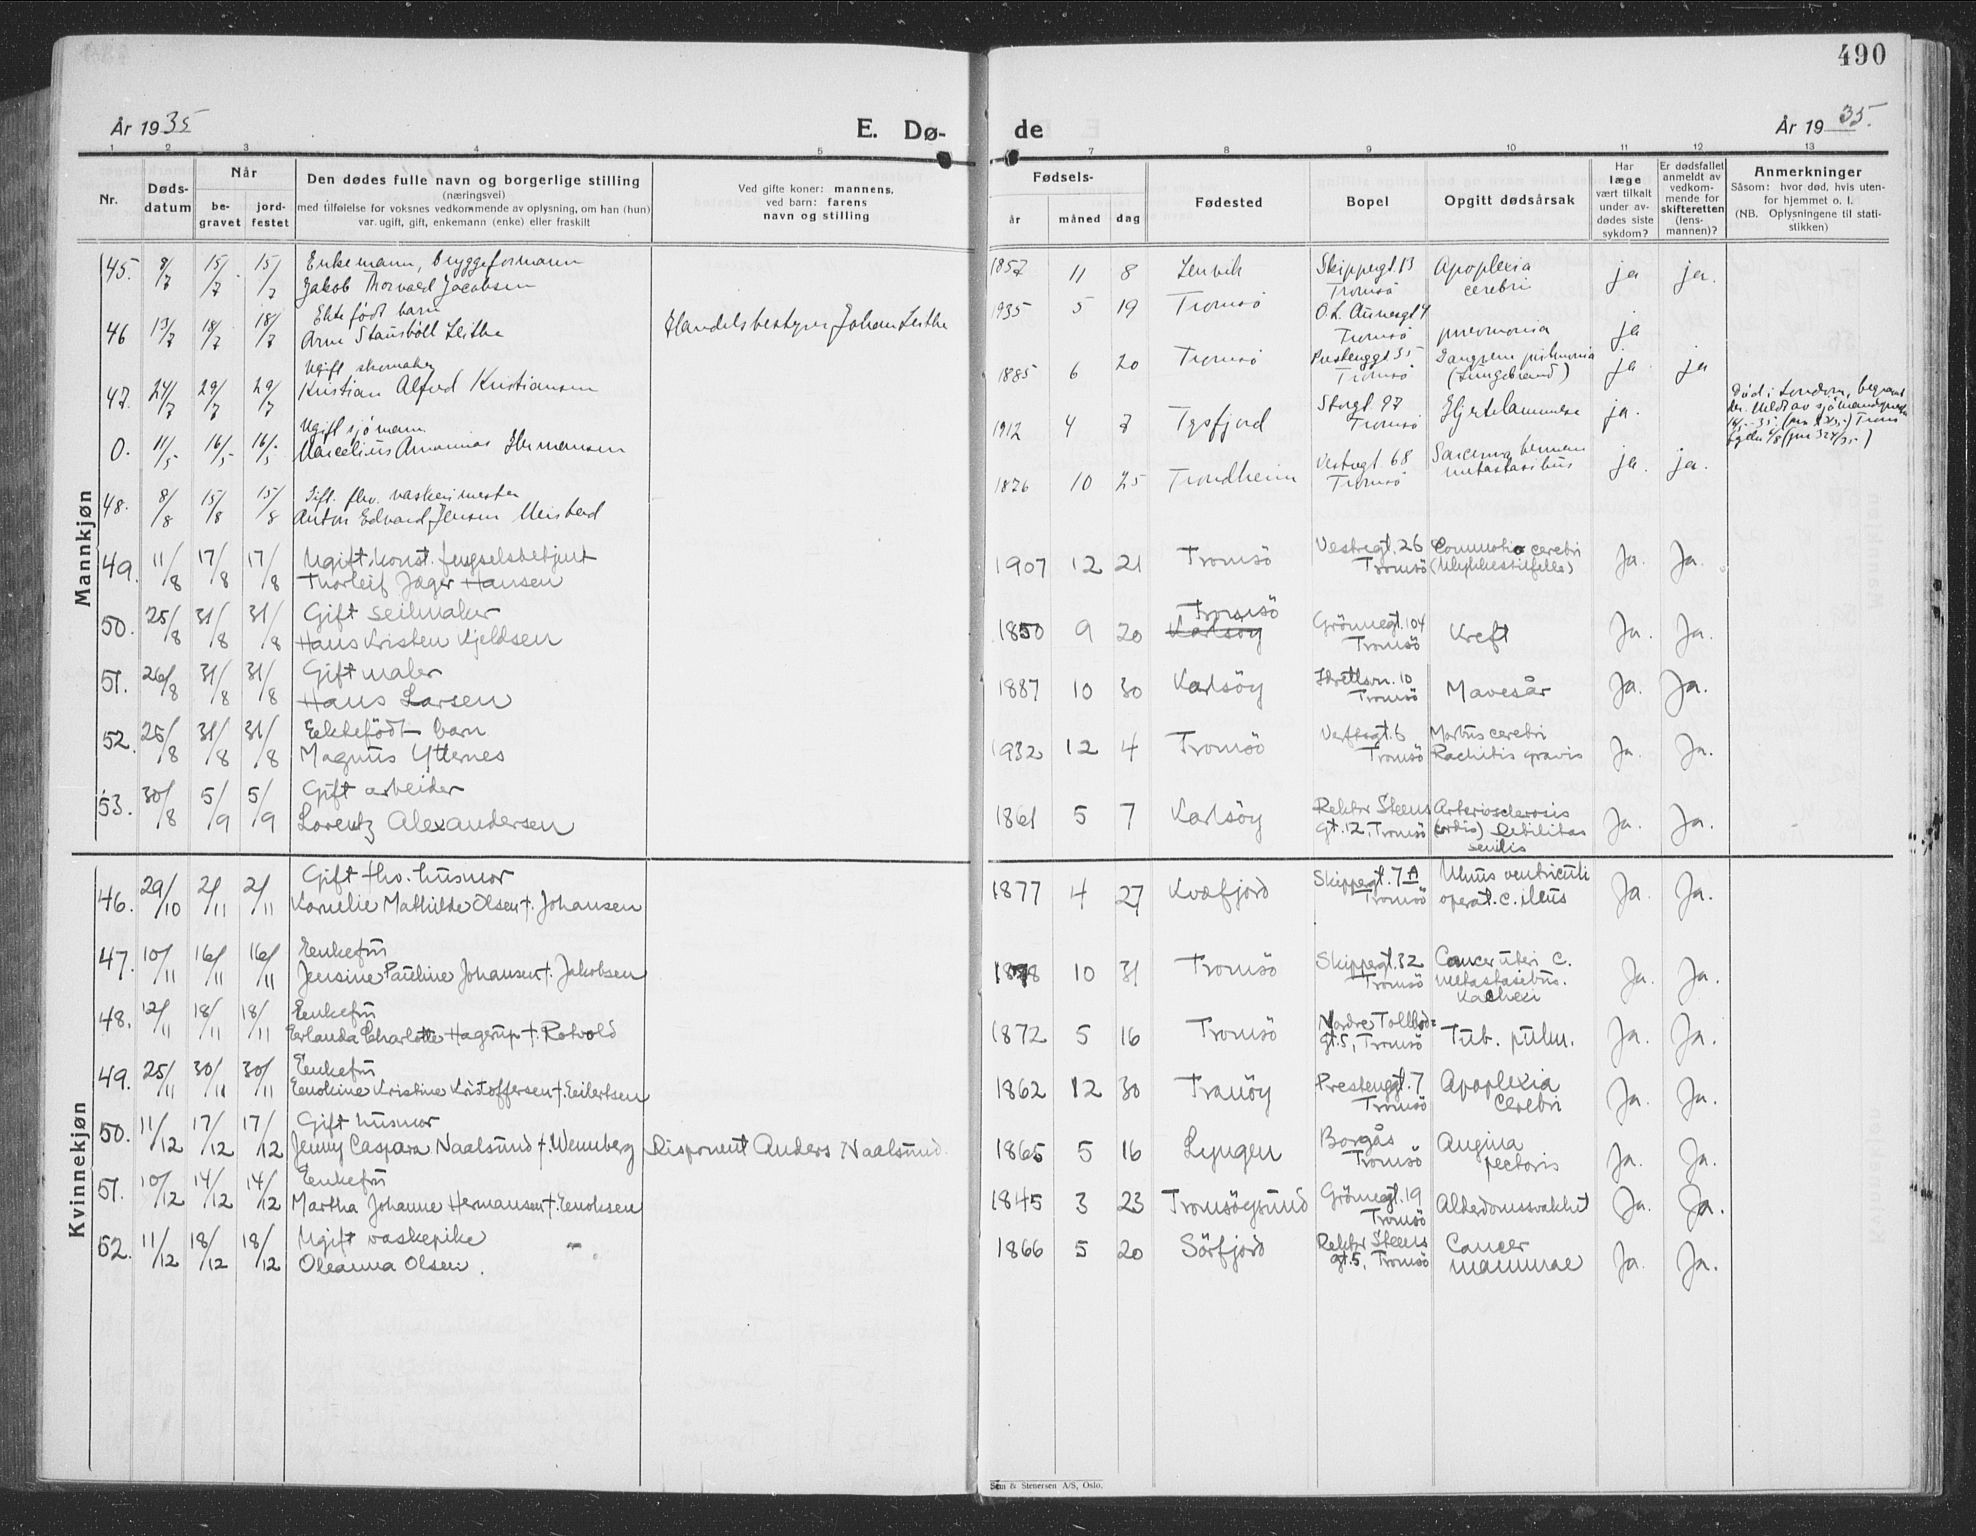 490
År 1935
E. Dø-
de
År 1935.
1 2 3 4 5 7 8 9 10 11 12 13
Nr.
Døds-
datum
Når
be-
gravet
jord-
festet
Den dødes fulle navn og borgerlige stilling
(næringsvei)
med tilføielse for voksnes vedkommende av oplysning, om han (hun)
var ugift, gift, enkemann (enke) eller fraskilt
Ved gifte koner: mannens,
ved barn: farens
navn og stilling
Fødsels-
år
måned
dag
Fødested
Bopel
Opgitt dødsårsak
Har
læge
vært tilkalt
under av-
dødes siste
sykdom?
Er dødsfallet
anmeldt av
vedkom-
mende for
skifteretten
(lens-
mannen)?
Anmerkninger
Såsom: hvor død, hvis uten-
for hjemmet o. l.
(NB. Oplysningene til stati-
stikken)
Mannkjøn
45. 8/7 15/7 15/7 Enkemann, bryggeformann
Jakob Thorvald Jacobsen
1857 11 8 Lenvik Skippergt. 13
Tromsö Apoplexia
cerebri ja ja.
46 13/7 18/7 18/7 Ekte født barn
Arne Stausböll Leithe Handelsbestyrer Johan Leithe
1935 5 19 Tromsö O. L. Aunegt 4
Tromsö pneumonia ja
47. 24/7 29/7 29/7 Ugift skomaker
Kristian Alfred Kristiansen
1885 6 20 Tromsö Prestenggt 35
Tromsö Gangræn pulmonia
(Lungebrand) ja ja
0. 11/5 16/5 16/5 Ugift sjömann
Marcelius Ananias Hermansen
1912 4 7 Tysfjord Storgt. 97
Tromsö Hjertelammelse ja.
Død i London, begravet
der. Meldt av sjömannsprest
48. 8/8 15/8 15/8 Gift. fhv. vaskerimester
Anton Edvard Jensen Meisterd
1876 10 25 Trondheim Vestregt. 68
Tromsö Sarcoma
metastasibus ja. ja.
49. 11/8 17/8 17/8 Ugift, konst. fengselsbetjent
Thorleif Jäger Hansen
1907 12 21 Tromsö Vestregt. 26
Tromsö Commotio cerebri
(Ulykkestilfelle) Ja. Ja.
50. 25/8 31/8 31/8 Gift seilmaker
Hans Kristen Kjeldsen
1850 9 20 Tromsö
Karlsöy Grönnegt. 104
Tromsö Kreft Ja. Ja.
51. 26/8 31/8 31/8 Gift maler
Hans Larsen
1887 10 30 Karlsöy Idrettsvn. 10
Tromsö Mavesår Ja. Ja.
52. 25/8 31/8 31/8 Ektefödt barn
Magnus Ytternes
1932 12 4 Tromsö Verftsgt. 6
Tromsö Morbus cerebri
Rachitis gravis Ja. Ja.
53. 30/8 5/9 5/9 Gift arbeider
Lorentz Alexandersen
1861 5 7 Karlsöy Rektor Steens
gt. 12, Tromsö Arteriosclerosis
(cordis) Debilitas
senilis Ja. Ja.
Kvinnekjøn
46. 29/10 2/11 2/11 Gift fhv. husmor
Kornelie Mathilde Olsen f. Johansen
1877 4 27 Kvæfjord Skippergt. 7 A
Tromsö Ulcus ventriculi
operat. c. ileus Ja. Ja.
47. 10/11 16/11 16/11 Enkefru
Jensine Pauline Johansen f. Jakobsen
1878 10 31 Tromsö Skippergt. 32
Tromsö Cancer uteri c.
metastasibus.
Kachexi Ja. Ja.
48. 12/11 18/11 18/11 Enkefru
Erlanda Charlotte Hagerup f. Rotvold
1872 5 16 Tromsö Nordre Tollbod=
gt. 5, Tromsö Tub. pulm. Ja. Ja.
49. 25/11 30/11 30/11 Enkefru
Enokine Kristine Kristoffersen f. Eilertsen
1862 12 30 Tranöy Prestenggt. 7
Tromsö Apoplexia
cerebri Ja. Ja.
50. 11/12 17/12 17/12 Gift husmor
Jenny Caspara Naalsund f. Wennberg Disponent Anders Naalsund.
1865 5 16 Lyngen Borgås
Tromsö Angina
pectoris Ja. Ja.
51. 10/12 14/12 14/12 Enkefru
Martha Johanne Hermansen f. Enoksen
1845 3 23 Tromsöysund Grönnegt. 19
Tromsö Alderdomssvakhet Ja. Ja.
52. 11/12 18/12 18/12 Ugift vaskepike
Oleanna Olsen. -
1866 5 20 Sörfjord Rektor Steens
gt. 5, Tromsö Cancer
mammae Ja. Ja.
Sem & Stenersen A/S, Oslo.